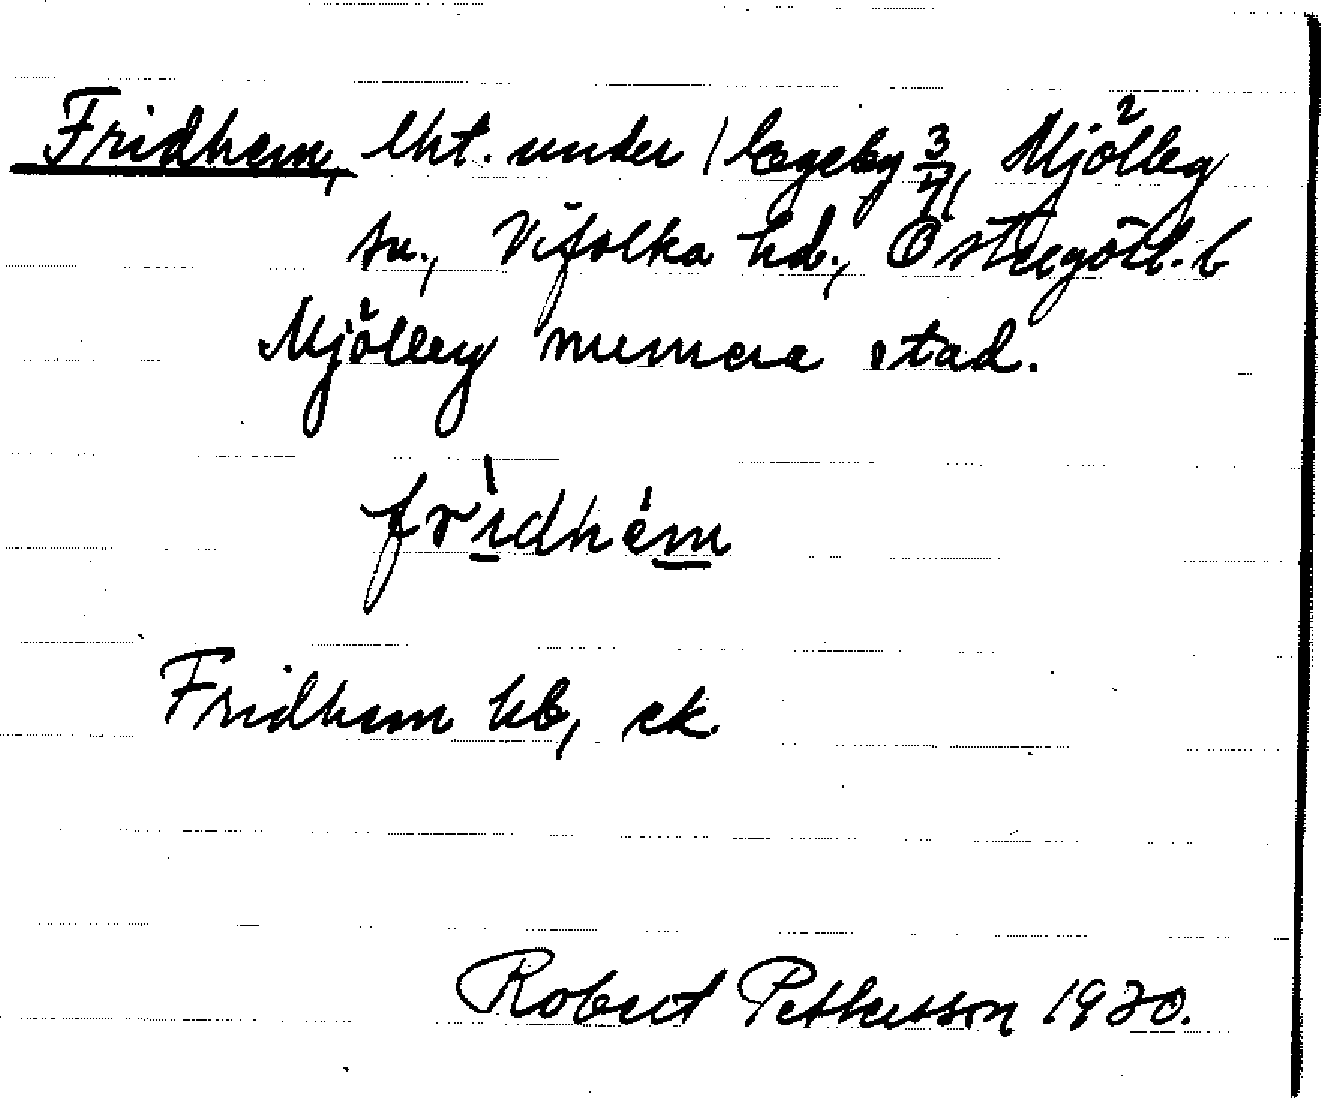 Fridhem, lht. under Ägeby 3/4, Mjölby
sn., Vifolka hd., Östergötl. l.
Mjölby numera stad.
fridhem
Fridhem hb, ek
Robert Pettersson 1930.